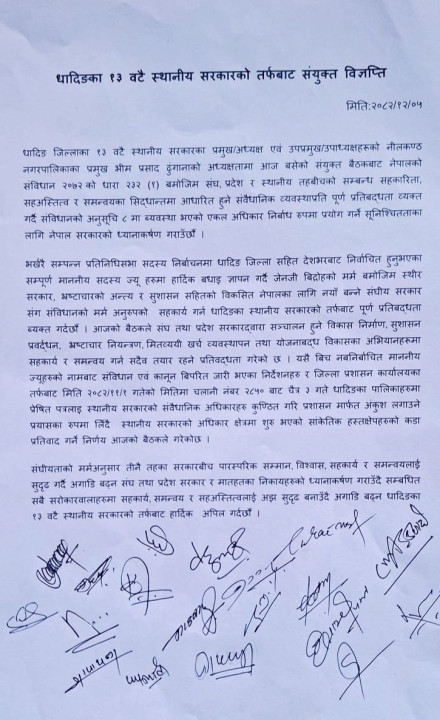 धादिङका १३ वटै स्थानीय सरकारको तर्फबाट संयुक्त विज्ञप्ति
मिति:२०८२/१२/०५
धादिङ जिल्लाका १३ वटै स्थानीय सरकारका प्रमुख/अध्यक्ष एवं उपप्रमुख/उपाध्यक्षहरूको नीलकण्ठ
नगरपालिकाका प्रमुख भीम प्रसाद ढुंगानाको अध्यक्षतामा आज बसेको संयुक्त बैठकबाट नेपालको
संविधान २०७२ को धारा २३२ (१) बमोजिम संघ, प्रदेश र स्थानीय तहबीचको सम्बन्ध सहकारिता,
सहअस्तित्व र समन्वयका सिद्धान्तमा आधारित हुने संवैधानिक व्यवस्थाप्रति पूर्ण प्रतिबद्धता व्यक्त
गर्दै संविधानको अनुसूचि ८ मा ब्यवस्था भएको एकल अधिकार निर्बाध रुपमा प्रयोग गर्ने सुनिश्चितताका
लागि नेपाल सरकारको ध्यानाकर्षण गराउँछौं ।
भर्खरै सम्पन्न प्रतिनिधिसभा सदस्य निर्वाचनमा धादिङ जिल्ला सहित देशभरबाट निर्वाचित हुनुभएका
सम्पूर्ण माननीय सदस्य ज्यू हरुमा हार्दिक बधाइ ज्ञापन गर्दै जेनजी बिद्रोहको मर्म बमोजिम स्थीर
सरकार, भ्रष्टाचारको अन्त्य र सुशासन सहितको विकसित नेपालका लागि नयाँ बन्ने संघीय सरकार
संग संविधानको मर्म अनुरुपको सहकार्य गर्न धादिङका स्थानीय सरकारको तर्फबाट पूर्ण प्रतिबद्धता
ब्यक्त गर्दछौं । आजको बैठकले संघ तथा प्रदेश सरकारद्वारा सञ्चालन हुने विकास निर्माण, सुशासन
प्रवर्द्धन, भ्रष्टाचार नियन्त्रण, मितव्ययी खर्च व्यवस्थापन तथा योजनाबद्ध विकासका अभियानहरूमा
सहकार्य र समन्वय गर्न सदैव तयार रहने प्रतिवद्धता गरेको छ । यसै बिच नबनिर्बाचित माननीय
ज्यूहरुको नामबाट संविधान एवं कानून बिपरित जारी भएका निर्देशनहरु र जिल्ला प्रशासन कार्यालयका
तर्फबाट मिति २०८२/११/१ गतेको मितिमा चलानी नंबर २८५० बाट चैत्र ३ गते धादिङका पालिकाहरुमा
प्रेषित पत्रलाइ स्थानीय सरकारको संवैधानिक अधिकारहरु कुण्ठित गरि प्रशासन मार्फत अंकुश लगाउने
प्रयासका रुपमा लिंदै स्थानीय सरकारको अधिकार क्षेत्रमा शुरु भएको सांकेतिक हस्तक्षेपहरुको कडा
प्रतिवाद गर्ने निर्णय आजको बैठकले गरेकोछ ।
संघीयताको मर्मअनुसार तीनै तहका सरकारबीच पारस्परिक सम्मान, विश्वास, सहकार्य र समन्वयलाई
सुदृढ गर्दै अगाडि बढ्न संघ तथा प्रदेश सरकार र मातहतका निकायहरुको ध्यानाकर्षण गराउँदै सम्बन्धित
सबै सरोकारवालाहरुमा सहकार्य, समन्वय र सहअस्तित्वलाई अझ सुदृढ बनाउँदै अगाडि बढ्न धादिङका
१३ वटै स्थानीय सरकारको तर्फबाट हार्दिक अपिल गर्दछौं ।